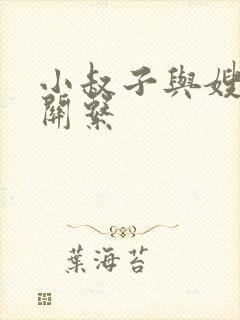 小叔子與嫂
關繫
葉海苔